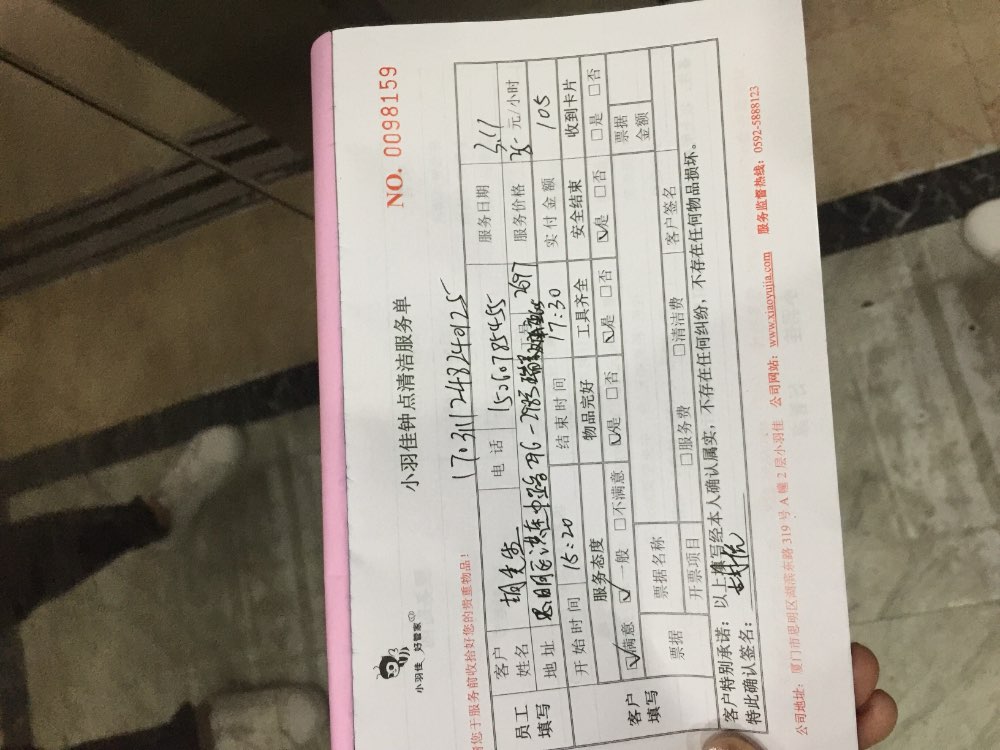 NO. 0098159
小羽佳钟点清洁服务单
小羽佳 好管家
170311248240125
请您于服务前收拾好您的贵重物品！
员工填写 客户姓名 胡先生 电话 15060785455 服务日期 3.11
地址 2697 服务价格 35- 元/小时
开始时间 15:20 结束时间 17:30 实付金额 105
客户填写 服务态度 物品完好 工具齐全 安全结束 收到卡片
☑满意 ☑一般 □不满意 ☑是 □否 ☑是 □否 ☑是 □否 □是 □否
票据 票据名称 票据金额
开票项目 □服务费 □清洁费 客户签名
客户特别承诺：以上填写经本人确认属实，不存在任何纠纷，不存在任何物品损坏。
特此确认签名：
公司地址：厦门市思明区湖滨东路 319 号 A 幢 2 层小羽佳 公司网站：www.xiaoyujia.com 服务监督热线：0592-5888123